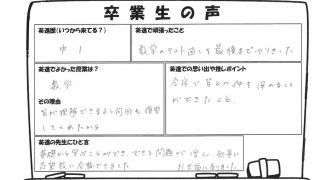 卒業生の声
英進歴(いつから来てる?)
中1
英進で頑張ったこと
数学のテスト直しを最後までできました
英進でよかった授業は?
数学
その理由
皆が理解できるまで何回も復習
してくれたから
英進での思い出や推しポイント
合宿で皆との仲を深めること
ができたこと
英進の先生にひと言
基礎から学ぶことができ、できる問題が増え、無事に
志望校に合格できました
お世話になりました